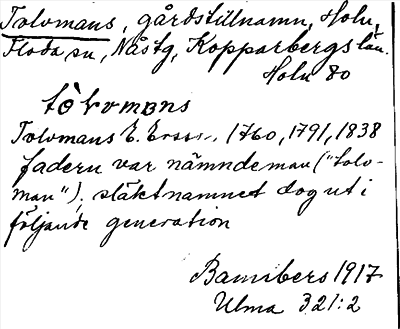 Tolvmans, gårdstillnamn, Holn,
Floda sn, Nåstg, Kopparbergs län.
Holn 80
tòlvmans
Tolvmans E. Ersson, 1760, 1791, 1838
fadern var nämndeman ("tolv-
man"); släktnamnet dog ut i
följande generation
1917
Ulma 321:2